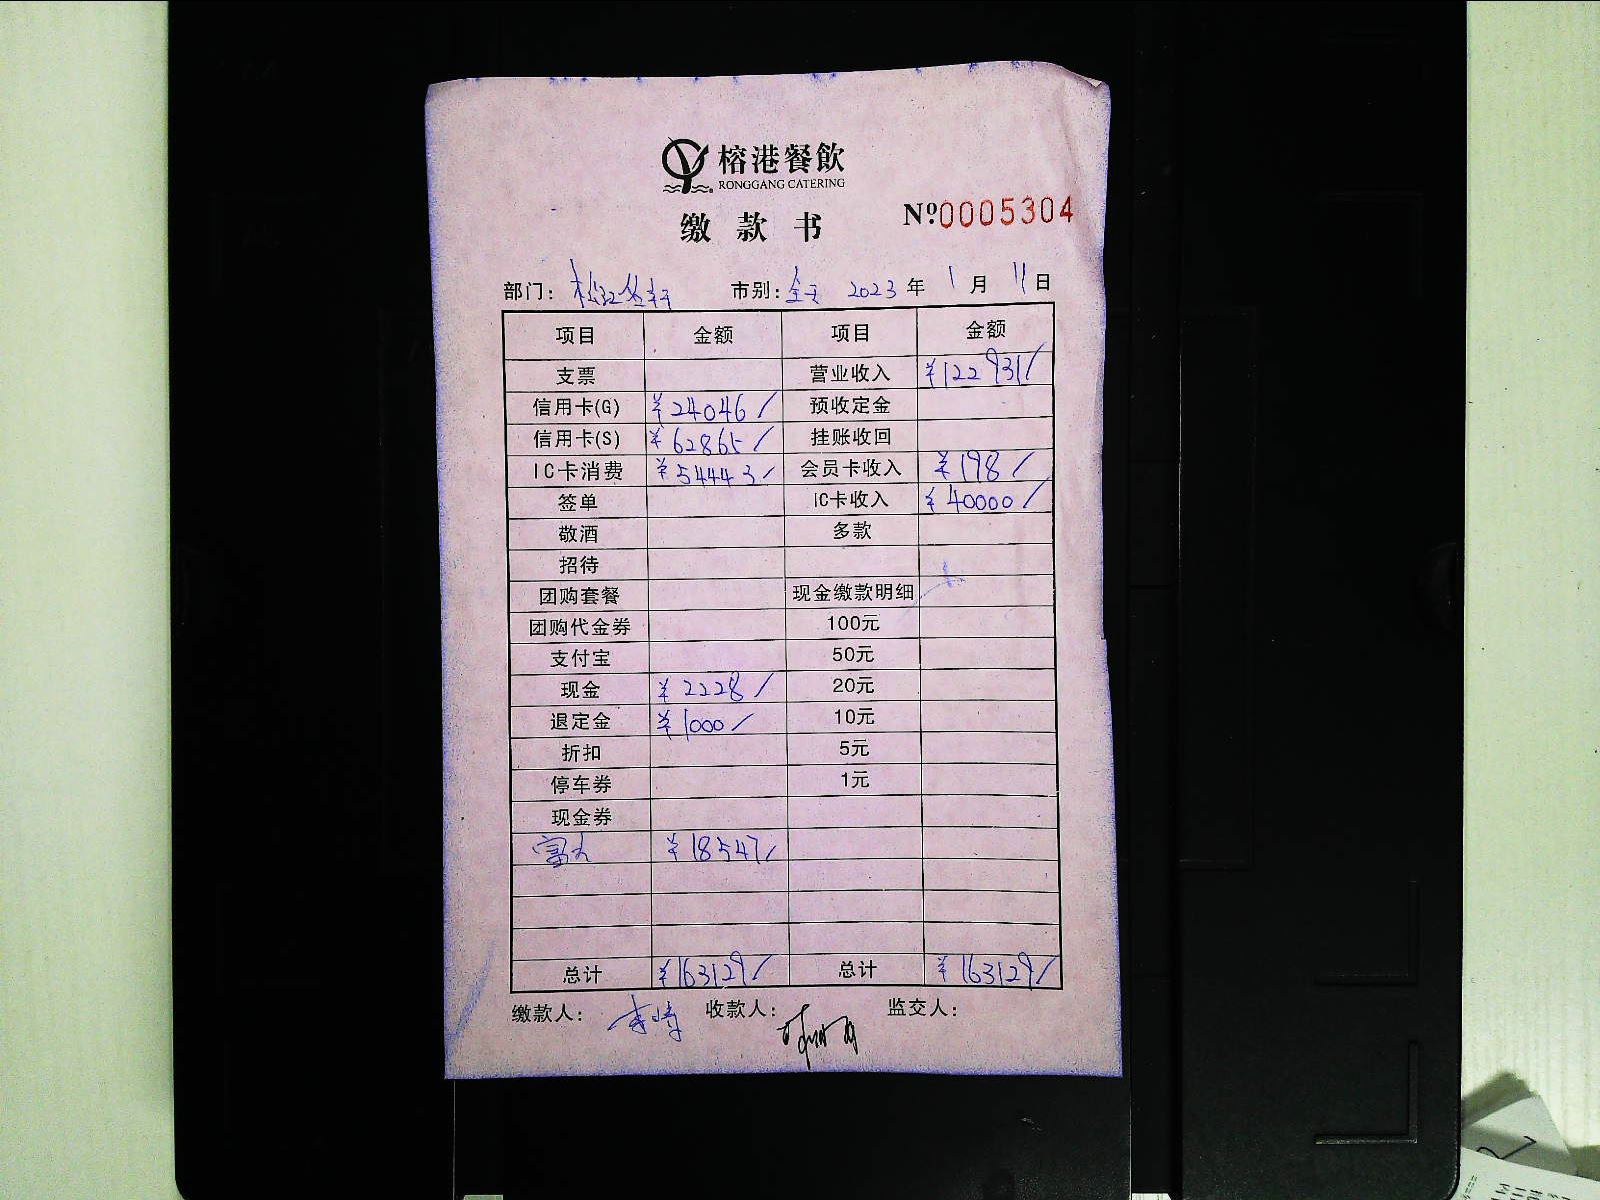 榕港餐飲
RONGGANG CATERING
缴款书
Nº0005304
部门: 市别: 全天 2023 年 1 月 11 日
项目 金额 项目 金额
支票 营业收入 ¥122931/
信用卡(G) ¥24046/ 预收定金
信用卡(S) ¥62865/ 挂账收回
IC卡消费 ¥54443/ 会员卡收入 ¥198/
签单 IC卡收入 ¥40000/
敬酒 多款
招待
团购套餐 现金缴款明细
团购代金券 100元
支付宝 50元
现金 ¥2228/ 20元
退定金 ¥1000/ 10元
折扣 5元
停车券 1元
现金券
¥18547/
总计 ¥163129/ 总计 ¥163129/
缴款人: 收款人: 监交人: